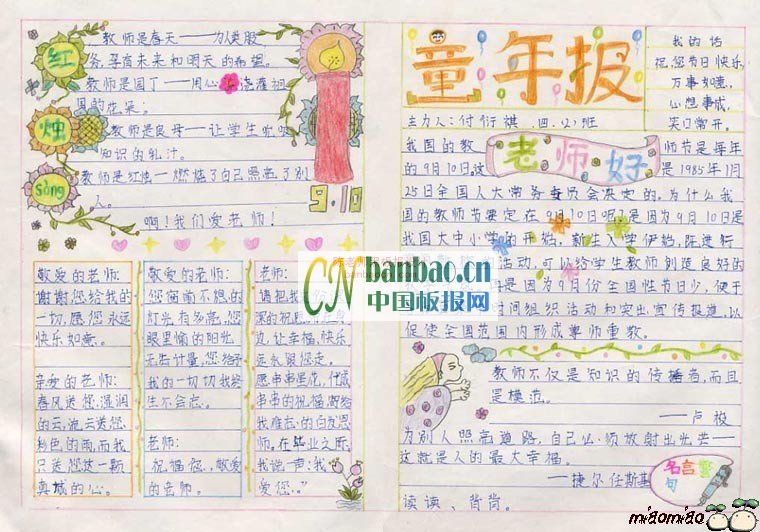 红
烛
Song
教师是春天——为人类服
务,孕育未来和明天的希望。
教师是园丁——用心 浇灌祖
国的花朵。
教师是良母——让学生吮吸
知识的乳汁。
教师是红烛——燃烧了自己照亮了别
人。
啊!我们爱老师!
9.10
敬爱的老师:
谢谢您给我的
一切,愿您永远
快乐如意。
亲爱的老师:
春风送您湿润
的云,池云送您
彩色的雨,而我
只送您这一颗
真诚的心。
敬爱的老师:
灯光,有多亮,您
眼里愉的阳光
无法计量,您给予
我的一切切我终
生不会忘。
老师:
祝福您,敬爱
的老师。
老师:
请把我
深的祝愿
边,让幸福、快乐
永永跟您走。
愿串串星花,代成
串串的祝福,寄给
我难忘的白发恩
师。在毕业之际,
我说一声:我
爱您!
童年报
我的话
祝您节日快乐,
万事如意,
心想事成,
笑口常开。
主力人:付衍棋 四.(2)班
老师好
我国的教 师节是每年
的9月10日,这 是1985年1月
25日全国人大常务委员会决定的。为什么我
国的教师节要定在9月10日呢?是因为9月10日是
我国大中小学的开始,新生入学伊始,陈进行
活动,可以给学生教师创造良好的
是因为9月份全国性节日少,便于
时间组织活动和突出宣传报道,以
促使全国范围内形成尊师重教。
教师不仅是知识的传播者,而且
是模范。
——卢梭
为别人照亮道路,自己必须放射出光芒—
这就是人的最大幸福。
——捷尔任斯基
名言警句
读读、背背。
CN banbao.cn
中国板报网
miaomiao